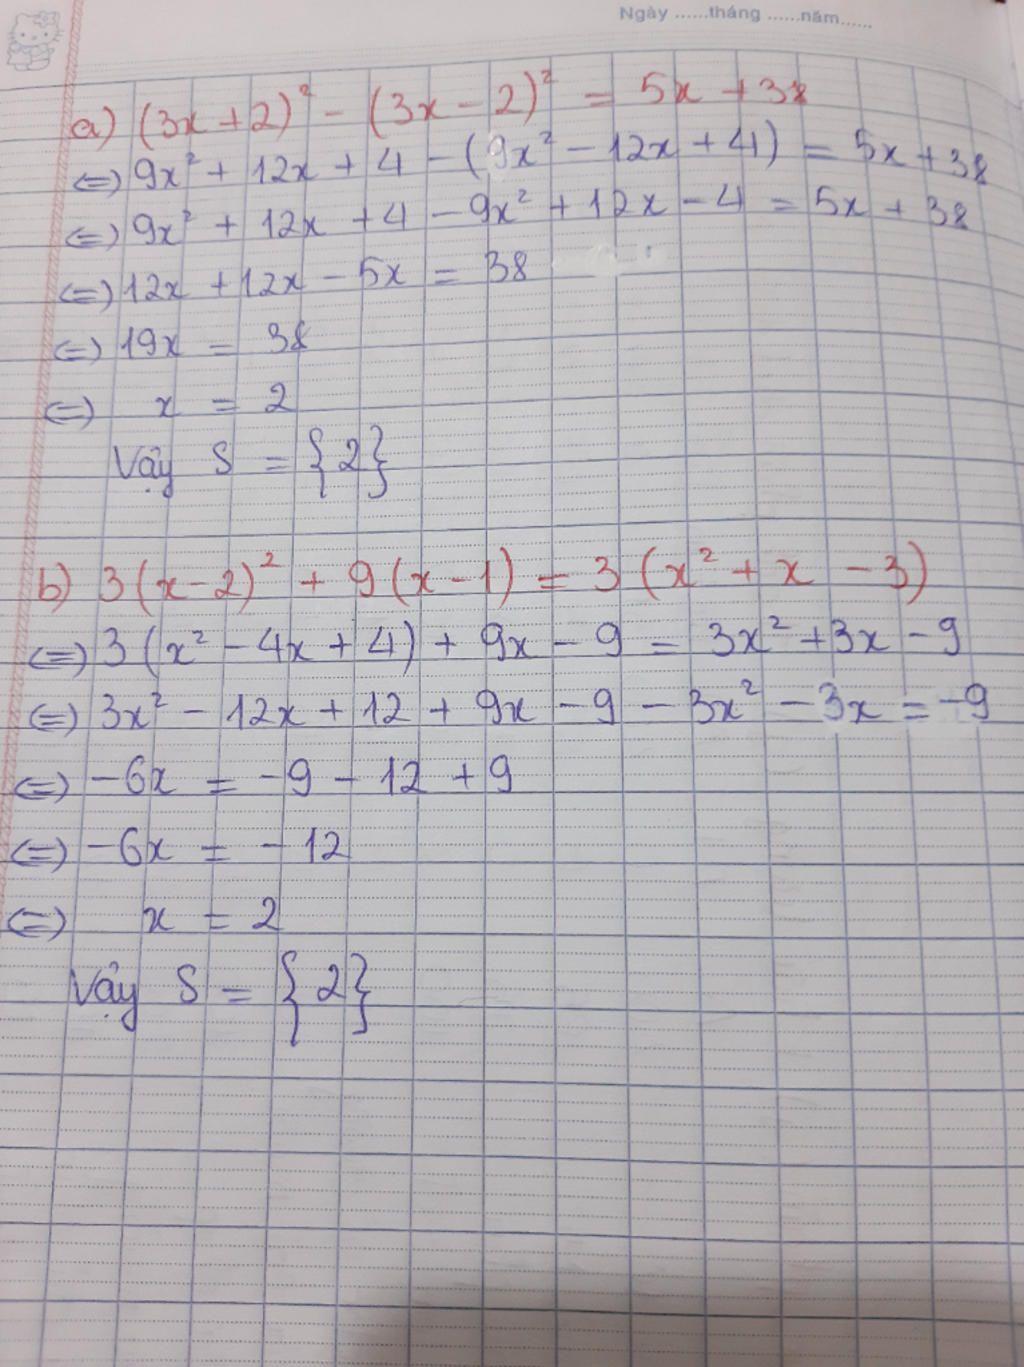 Ngày ......tháng ......năm......
a) (3x + 2)² - (3x - 2)² = 5x + 38
⇔ 9x² + 12x + 4 - (9x² - 12x + 4) = 5x + 38
⇔ 9x² + 12x + 4 - 9x² + 12x - 4 = 5x + 38
⇔ 12x + 12x - 5x = 38
⇔ 19x = 38
⇔ x = 2
Vậy S = {2}
b) 3(x - 2)² + 9(x - 1) = 3(x² + x - 3)
⇔ 3(x² - 4x + 4) + 9x - 9 = 3x² + 3x - 9
⇔ 3x² - 12x + 12 + 9x - 9 - 3x² - 3x = -9
⇔ -6x = -9 - 12 + 9
⇔ -6x = -12
⇔ x = 2
Vậy S = {2}